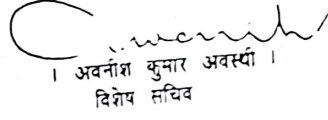 । अवनीश कुमार अवस्थी ।
विशेष सचिव